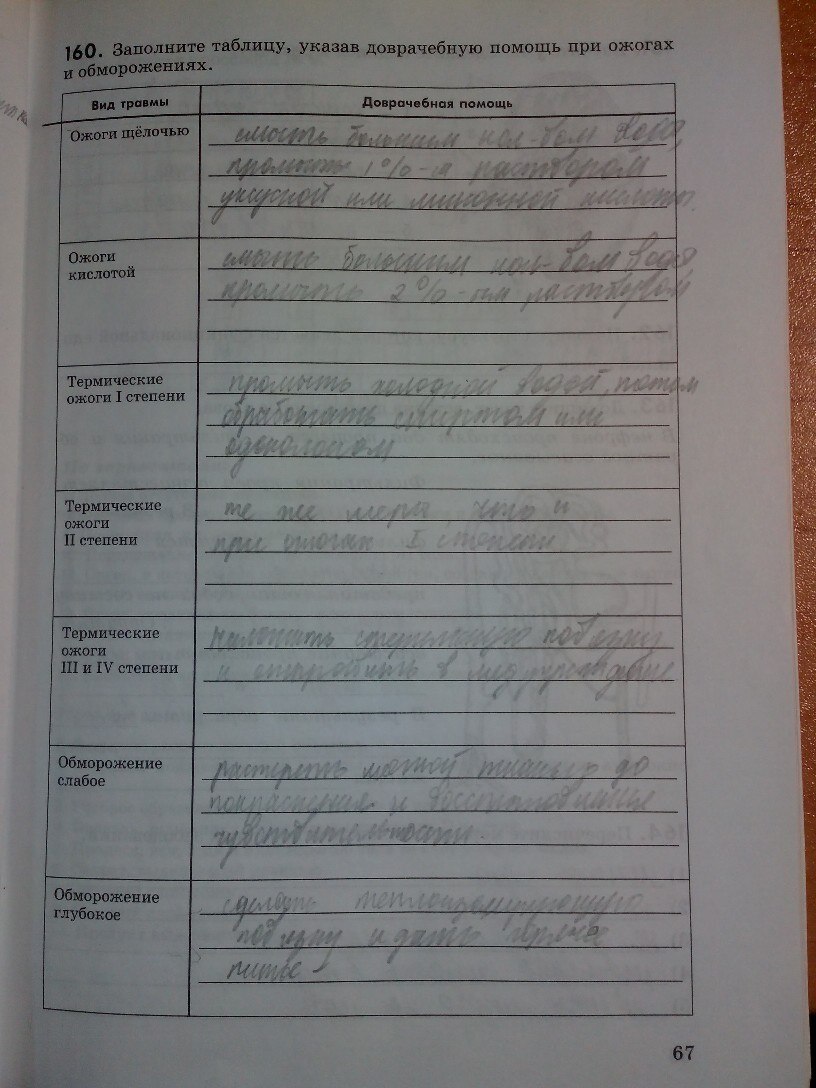 160. Заполните таблицу, указав доврачебную помощь при ожогах
и обморожениях.
Вид травмы
Доврачебная помощь
Ожоги щёлочью
смыть большим кол-вом воды,
промыть 1%-м раствором
уксусной или лимонной кислоты.
Ожоги
кислотой
смыть большим кол-вом воды,
промыть 2%-ым раствором
Термические
ожоги I степени
промыть холодной водой, потом
обработать спиртом или
одеколоном
Термические
ожоги
II степени
те же меры, что и
при ожогах I степени
Термические
ожоги
III и IV степени
наложить стерильную повязку
и в мед
Обморожение
слабое
растереть мягкой тканью до
покраснения и восстановления
чувствительности.
Обморожение
глубокое
сделать теплоизолирующую
повязку и дать горячее
питьё
67